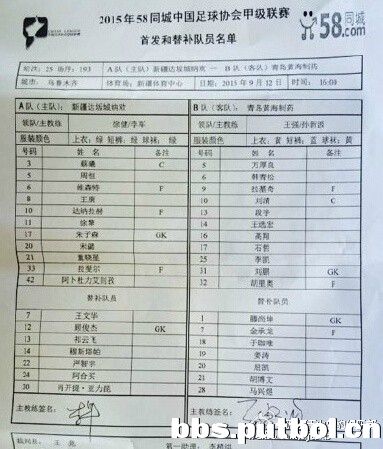 2015年58同城中国足球协会甲级联赛
首发和替补队员名单
58同城.com
轮次：25 场序：193 A队（主队）：新疆达坂城纳欢 — B队（客队）青岛黄海制药
城市：乌鲁木齐 体育场：新疆体育中心 日期：2015年9月12日 时间：16:00
A队（主队）：新疆达坂城纳欢 B队（客队）：青岛黄海制药
领队/主教练 徐健/李军 领队/主教练 王强/孙新波
服装颜色 上衣：绿 短裤：绿 球袜：绿 服装颜色 上衣：黄 短裤：蓝 球袜：黄
号码 姓名 备注 号码 姓名 备注
3 蔡曦 C 5 万厚良
5 周恒 6 韩青松
6 维森特 F 9 拉基奇 F
8 王庚 10 刘清 C
10 达纳拉赫 F 13 段宇
11 徐擎 14 王选宏
17 朱子森 GK 16 高翔
20 宋懿 17 石哲
21 25 李凯
33 拉斐尔 F 31 刘鹏 GK
42 阿卜杜力艾则孜 32 胡里奥 F
替补队员 替补队员
7 王文华 1 滕尚坤 GK
12 顾俊杰 GK 7 金承龙 F
13 祁云飞 18 于咖唯
14 穆斯塔帕 19 姜涛
22 严智宇 20 屈凯
24 阿合买 21 胡博文
30 肖开提·亚力昆 28 马兴煜
主教练签名： 主教练签名：
bbs.putbol.cn
第一助理：